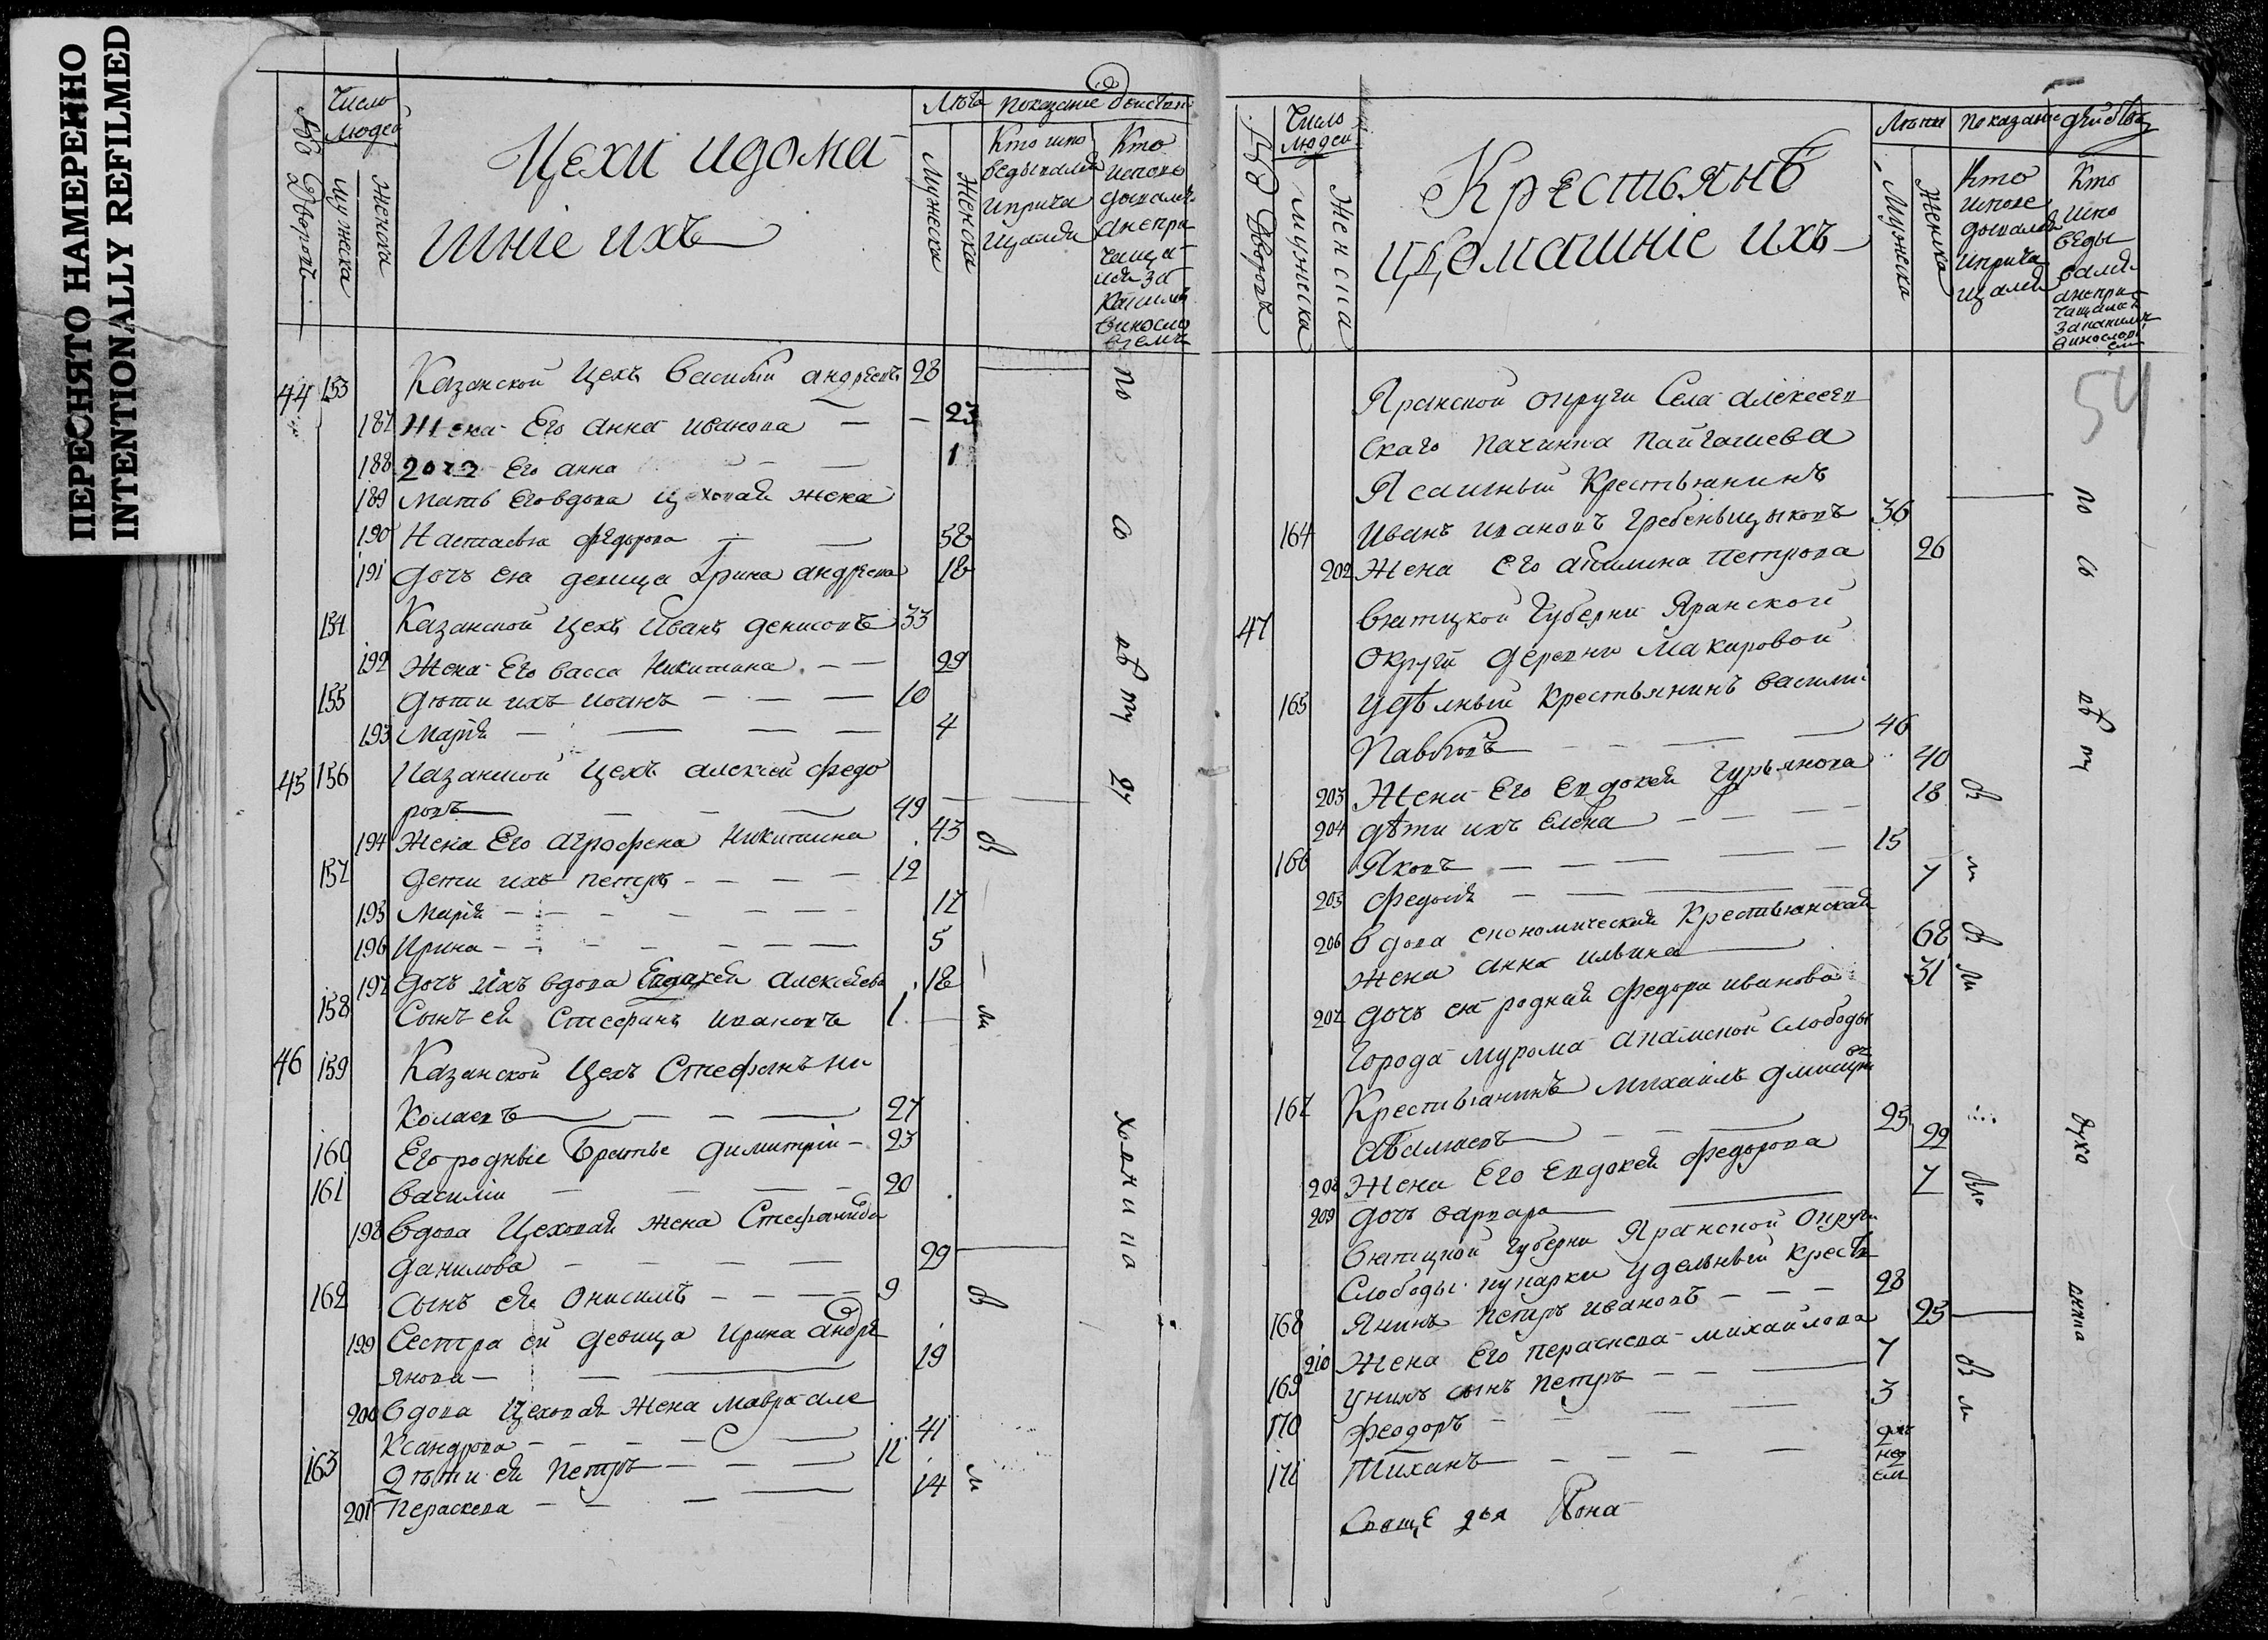 ПЕРЕСНЯТО НАМЕРЕННО
INTENTIONALLY REFILMED
Число
людей
Мужеска
Женска
Цехи и дома
шніе ихъ
Лѣта
Мужеска
Женска
Показание
Кто испо
ведывался
и прича
щался
Кто
испове
дывался
а непри
чаща
лся за
каким
виносло
виемъ
44 153 Казанской Цехъ Василій Андреевъ 28
187 Жена Его Анна Иванова — 23
188 дочь Его Анна 1
189 Мать Его вдова Цеховая жена
190 Настасья Федорова 58
191 Дочь ея девица Ирина Андреева 18
154 Казанской Цехъ Иванъ Денисовъ 33
192 Жена Его Васса Никитина 29
155 Дѣти ихъ Иоанъ 10
193 Марія 4
45 156 Казанской Цехъ Алексей Федо
ровъ 49
194 Жена Его Агрофена Никитина 43
157 Дети ихъ Петръ 12
195 Марія 17
196 Ирина 5
197 Дочь ихъ вдова Евдокея Алексеева 18
158 Сынъ ей Стефанъ Ивановъ 1
46 159 Казанской Цехъ Стефанъ Ни
колаевъ 27
160 Его родные братье Димитрій 23
161 Василіи 20
198 Вдова Цеховая жена Стефанида
Данилова 29
162 Сынъ ея Онисимъ 9
199 Сестра ей девица Ирина Андре
янова 19
200 Вдова Цеховая жена Мавра Але
ксандрова 41
163 Дѣти ей Петръ 12
201 Пераскева 14
по
со
вѣ
ту
духо
вника
Число
людей
Мужеска
Женска
Крестьянъ
и домашніе ихъ
Лѣта
Мужеска
Женска
Показание действа
Кто
испове
дывался
и прича
щался
Кто
испо
веды
вался
а непри
чащался
за каким
винослов
ем
54
Яранской округи Села Алексеев
скаго Починка Пайгашева
Ясашный Крестьянинъ
164 Иванъ Ивановъ Гребеньщыковъ 36
202 Жена Его Акилина Петрова 26
47 Вятицкой Губерни Яранской
округи деревни Макаровой
165 Удѣлный Крестьянинъ Василій
Павловъ 46
203 Жена Его Евдокея Гурьянова 40
204 Дѣти ихъ Елена 18
166 Яковъ 15
205 Федосья 7
206 Вдова Економическая Крестьянская
жена Анна Ильина 68
207 Дочь ея родная Федора Иванова 31
Города Мурома Слободы
167 Крестьянинъ Михаилъ Дмитр
евъ
25
208 Жена Его Евдокея Федорова 22
209 Дочь Варвара 7
Вятицкой Губерни Яранской Округи
Слободы Кукарки Удельный кресть
168 янинъ Петръ Ивановъ 28
210 Жена Его Пераскева Михайлова 25
169 У нихъ сынъ Петръ 7
170 Феодоръ 3
171 Тиханъ двѣ
нед
ел
по
со
вѣ
ту
духо
вника